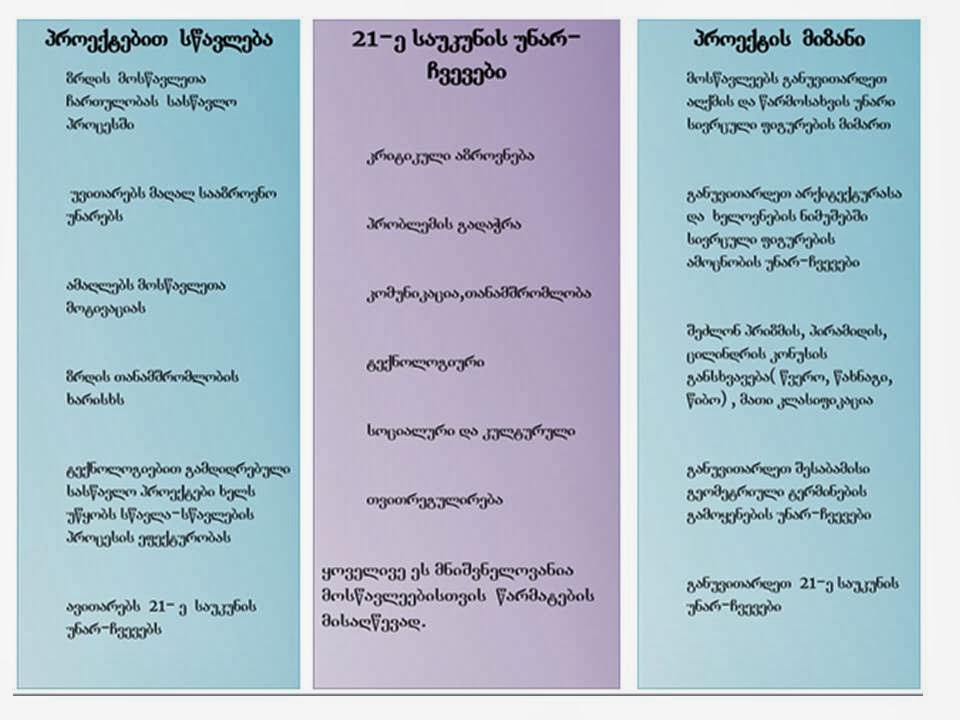 პროექტებით სწავლება
ზრდის მოსწავლეთა
ჩართულობას სასწავლო
პროცესში
უვითარებს მაღალ სააზროვნო
უნარებს
ამაღლებს მოსწავლეთა
მოტივაციას
ზრდის თანამშრომლობის
ხარისხს
ტექნოლოგიებით გამდიდრებული
სასწავლო პროექტები ხელს
უწყობს სწავლა-სწავლების
პროცესის ეფექტურობას
ავითარებს 21- ე საუკუნის
უნარ-ჩვევებს
21-ე საუკუნის უნარ-
ჩვევები
კრიტიკული აზროვნება
პრობლემის გადაჭრა
კომუნიკაცია,თანამშრომლობა
ტექნოლოგიური
სოციალური და კულტურული
თვითრეგულირება
ყოველივე ეს მნიშვნელოვანია
მოსწავლეებისთვის წარმატების
მისაღწევად.
პროექტის მიზანი
მოსწავლეებს განუვითარდეთ
აღქმის და წარმოსახვის უნარი
სივრცული ფიგურების მიმართ
განუვითარდეთ არქიტექტურასა
და ხელოვნების ნიმუშებში
სივრცული ფიგურების
ამოცნობის უნარ-ჩვევები
შეძლონ პრიზმის, პირამიდის,
ცილინდრის კონუსის
განსხვავება( წვერო, წახნაგი,
წიბო) , მათი კლასიფიკაცია
განუვითარდეთ შესაბამისი
გეომეტრიული ტერმინების
გამოყენების უნარ-ჩვევები
განუვითარდეთ 21-ე საუკუნის
უნარ-ჩვევები